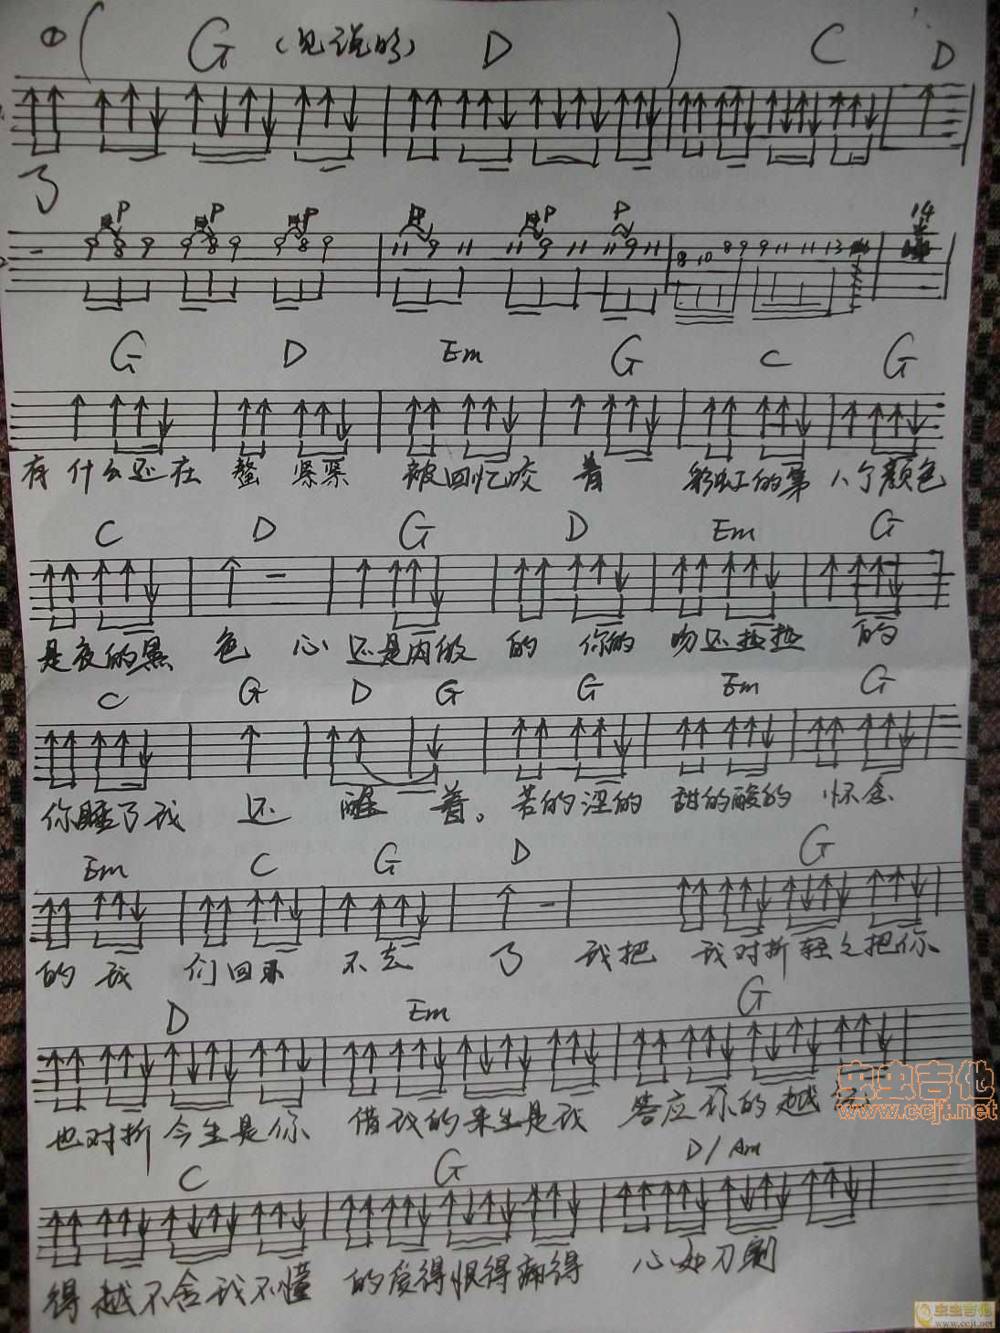 ① ( G (见说明) D ) C D
了
P P P P P P 14
9 8 9 9 8 9 9 8 9 11 9 11 11 9 11 11 9 11 8 10 8 9 9 11 11 13
G D Em G C G
有 什么还在 螫 紧紧 被回忆咬 着 彩虹的第 八个颜色
C D G D Em G
是夜的黑 色 心 还是两的 你的 吻还热热 的
C G D G G Em G
你睡了我 还 醒 着。 苦的涩的 甜的酸的 怀念
Em C G D G
的 我 们回不 不去 了 我把 我对折轻之把你
D Em G
也对折 今生是你 借我的来生是我 答应你的越
虫虫吉他
www.ccjt.net
C G D/Am
得越不舍我不懂 的爱得恨得痛得 心如刀割
虫虫吉他
www.ccjt.net